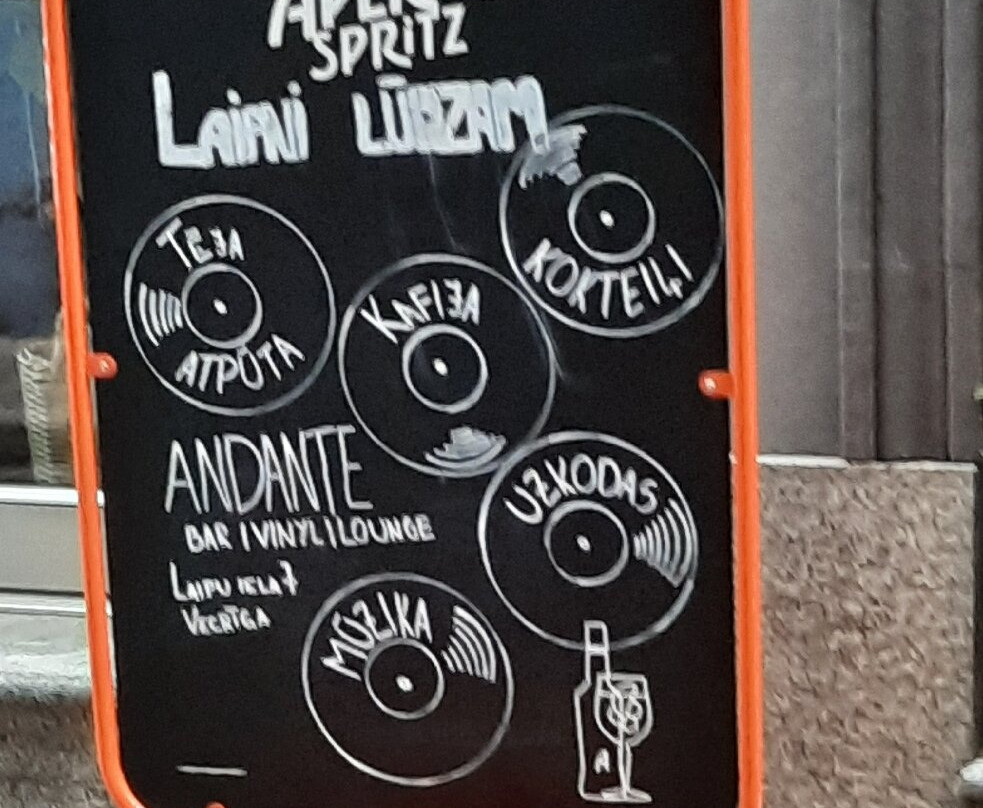 SPRITZ
LAIPNI LŪDZAM
KOKTEIĻI
TEJA
ATPŪTA
KAFIJA
ANDANTE
BAR | VINYL | LOUNGE
UZKODAS
LAIPU IELA 7
VECRĪGA
MŪZIKA
A